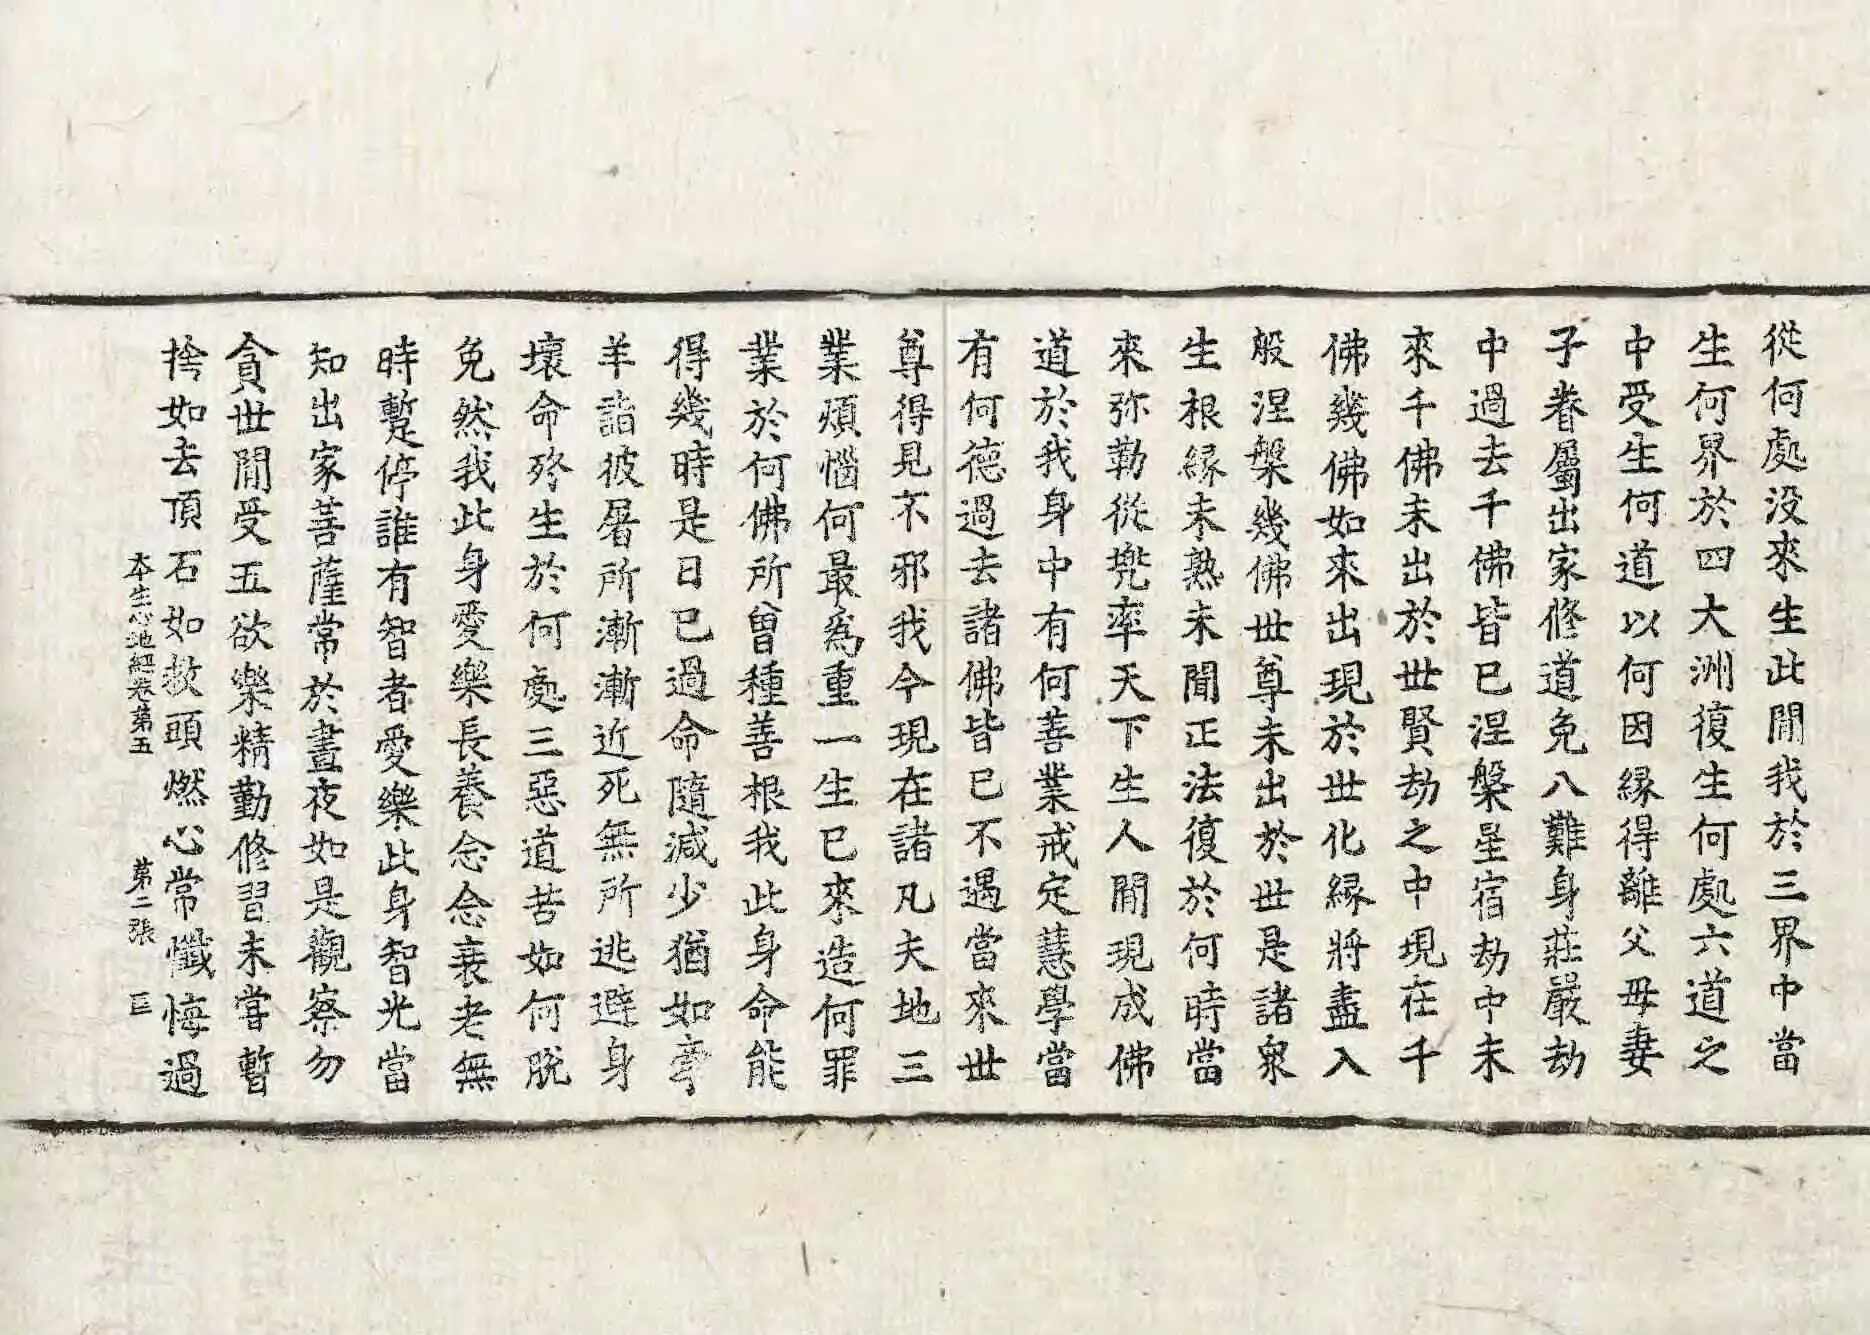 從何處没來生此閒我於三界中當
生何界於四大洲復生何處六道之
中受生何道以何因緣得離父母妻
子眷屬出家修道免八難身莊嚴劫
中過去千佛皆已涅槃星宿劫中未
來千佛未出於世賢劫之中現在千
佛幾佛如來出現於世化緣將盡入
般涅槃幾佛世尊未出於世是諸衆
生根緣未熟未聞正法復於何時當
來弥勒從兠率天下生人閒現成佛
道於我身中有何善業戒定慧學當
有何德過去諸佛皆已不遇當來世
尊得見不邪我今現在諸凡夫地三
業煩惱何最爲重一生已來造何罪
業於何佛所曾種善根我此身命能
得幾時是日已過命隨減少猶如牽
羊詣彼屠所漸漸近死無所逃避身
壞命終生於何處三惡道苦如何脫
免然我此身愛樂長養念念衰老無
時蹔停誰有智者愛樂此身智光當
知出家菩薩常於晝夜如是觀察勿
貪世閒受五欲樂精勤修習未嘗暫
捨如去頂石如救頭燃心常懺悔過
本生心地經卷第五 第二張 叵